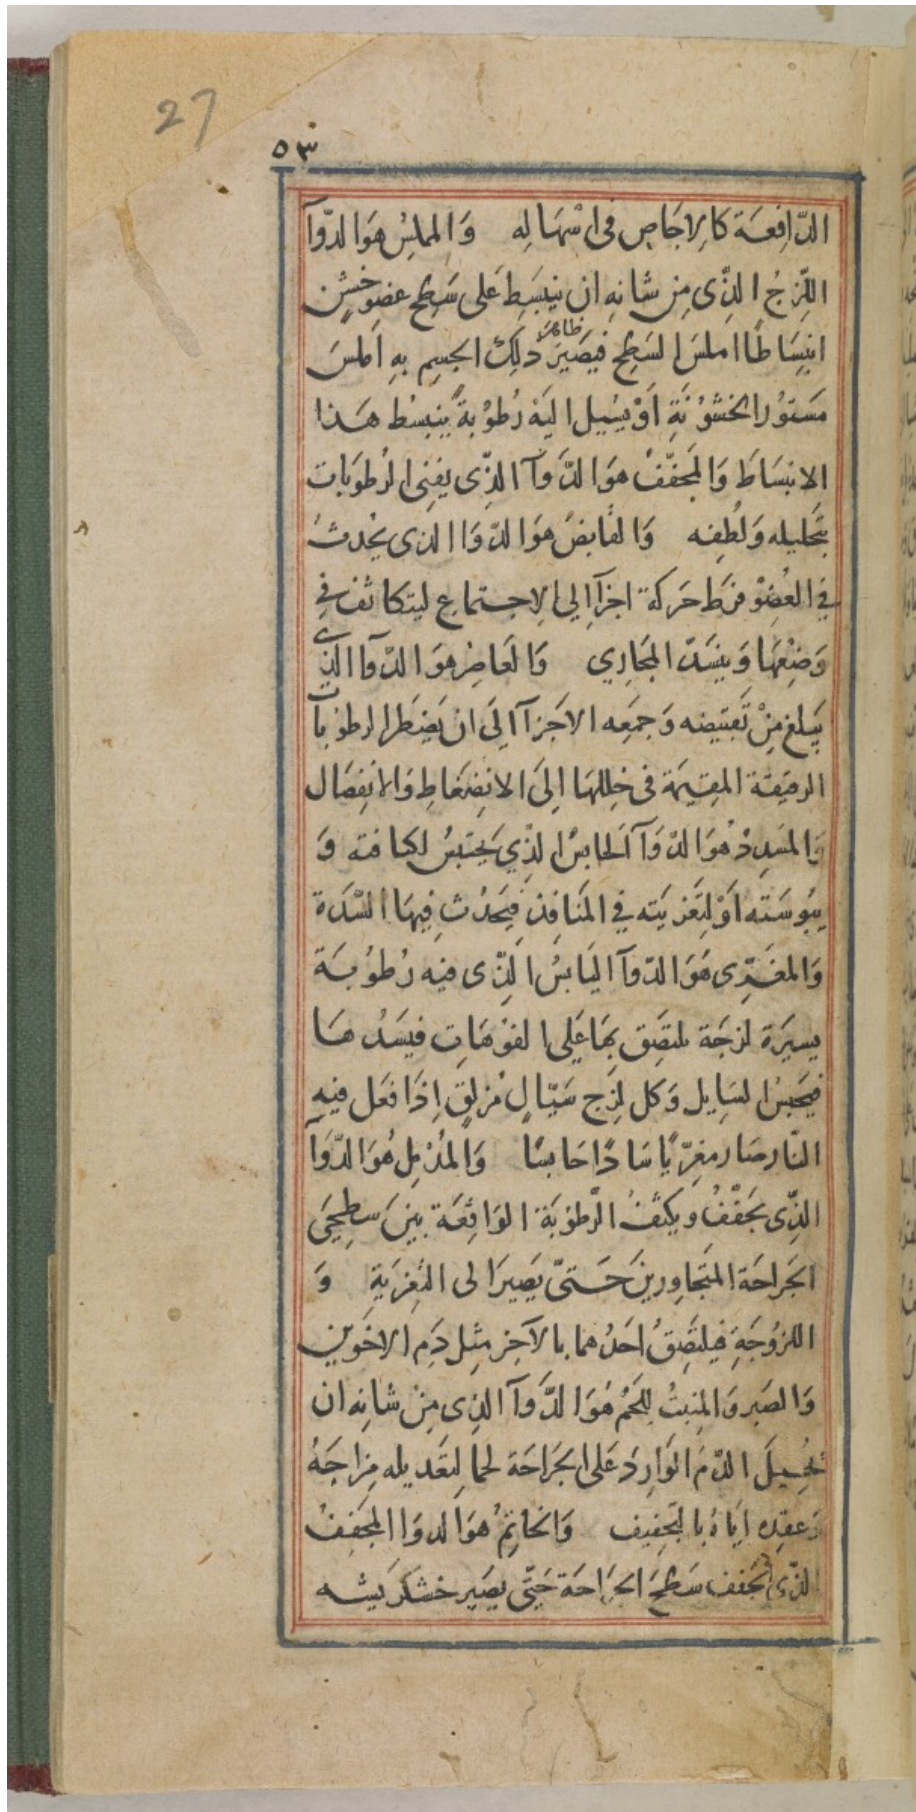 27
٥٣
الدّافِعَة كالاِجَاصِ فى اسْهَالِه وَالمملِسُ هوَالدّوآ
اللّزجُ الذّى مِن شانِهِ ان ينبَسِطَ عَلى سَطِح عضو خشِنٍ
انبِسَاطًا املسَ السَطِح فيَصَير ظاهر ذلِكَ الجسِم بهِ اَملسَ
مَستوُر الخشوُنَةِ اوْ يسَيل اليَه رُطوُبة ينبسُط هَذا
الانبسَاطَ وَالمجَفّفُ هوَ الدّوَآ الذّى يفِنى الرُطوَبات
بتَحليله وَلُطفِه وَالقابضُ هوَ الدّوَاا لذى يحُدثُ
فِي العُضِوْ فرَط حَركَة اجزآالى الاِجتماع ليتكاثف فِي
وَضِعهَا وَينسَدّ المجَارِي وَالعَاصِر هوَ الدّوَاالذّي
يَبلغ مِنْ تَقبيَضه وَجمَعِه الاجَزآ اِلىَ ان يَضَطَر الرطوَبات
الرقيَقة المقِيمَة فى خِللِهَا اِلىَ الانِضغَاطِ وَالانفِصَال
وَالمسَدِدْ هوَا لدّوَآ الحَابسُ الذِّي يَحتبسُ لكثافتِه وَ
يبُوسَتهِ اوَ لتَغرَيتِه في المنَافِذ فيَحدُث فِيهَا السّدَة
وَالمغَرِّى هَوَ الدّوآ اليَابسُ الذِّى فيه رُطوُبَة
يسيَرَة لزجَة يلتصَق بهَا عَلى الفوْهَاتِ فيسَدُهَا
فيحَبسُ السَايِل وَكل لزِج سَيّالٍ مُزلقٍ اِذَا فعَل فيهِ
النّار صَار مغِرّيًا سَادًا حَابسًا وَالمُدْمِل هُوَ الدّوَآ
الذّى يجَفّفُ ويكثفُ الرّطوَبَة الوَاقِعَة بينَ سطِحيَ
الجَراحَة المتجَاورينَ حَتىّ يَصيرَالى التغريَةِ وَ
اللزوُجَةِ فيلتصِقُ احَدُهمَا بالآخِر مِثل دَمِ الاخَوين
وَالصَبر وَالمنِبتُ للِحَمْ هُوَا لدّوَآ الذى مِنْ شانِه ان
يحُيلَ الدّمَ الوَارِدَ عَلى الجَرَاحَة لحما لتعَديله مِزاجَهُ
وَعقِدِه ايَاهُ بالتجَفِيف وَالخاتِمُ هوَالدوَا المجَفِفُ
الذِّى يُجَفف سَطِحَ الجرَاحَة حَتِّى يصَيرخشكريشه